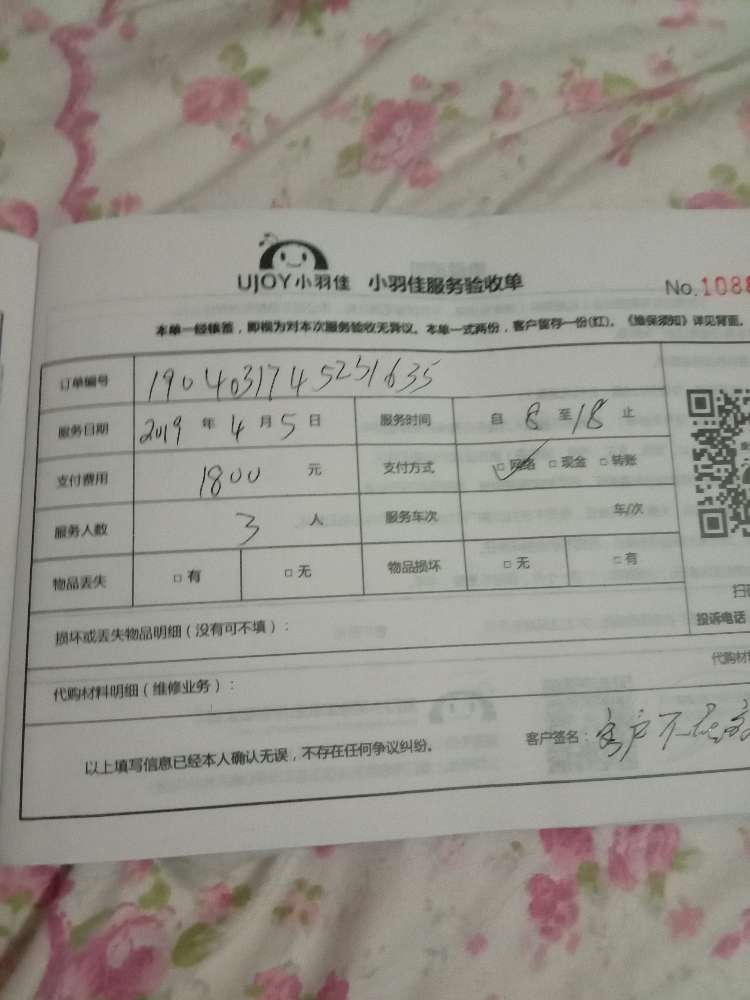 UJOY小羽佳 小羽佳服务验收单 No.1088
本单一经核签，即视为对本次服务验收无异议。本单一式两份，客户留存一份(红)。《维保须知》详见背面。
订单编号 1904031745251635
服务日期 2019 年 4 月 5 日 服务时间 自 8 至 18 止
支付费用 1800 元 支付方式 □网络 □现金 □转账
服务人数 3 人 服务车次 车/次
物品丢失 □有 □无 物品损坏 □无 □有
扫
损坏或丢失物品明细（没有可不填）： 投诉电话
代购材
代购材料明细（维修业务）：
以上填写信息已经本人确认无误，不存在任何争议纠纷。 客户签名：客户不在家